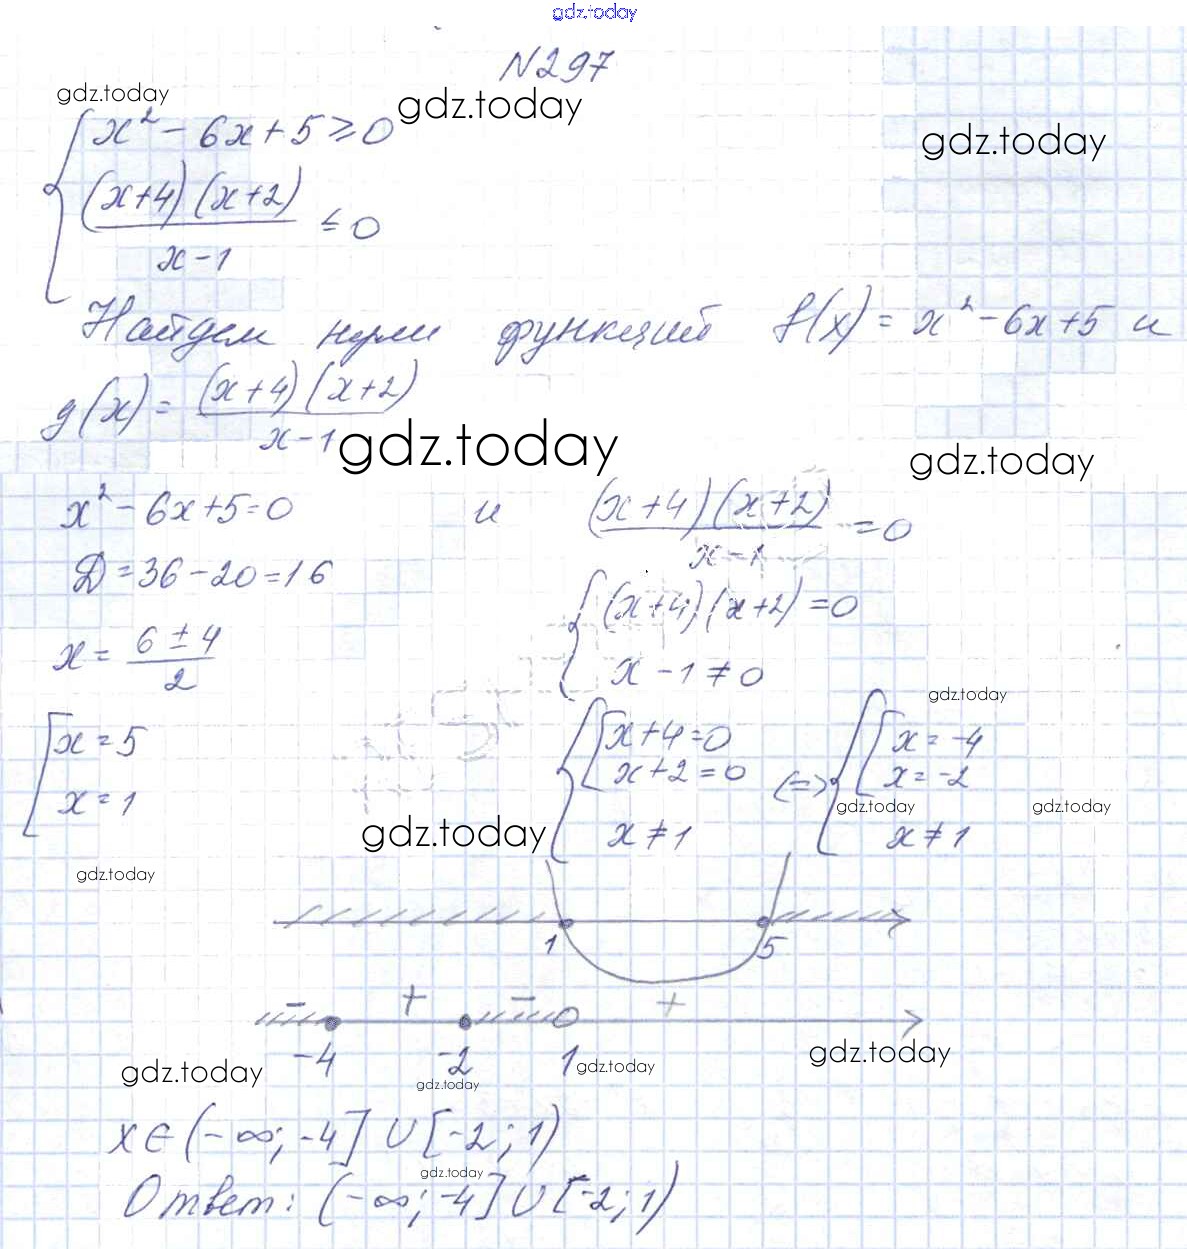 gdz.today
N297
gdz.today gdz.today gdz.today
{ x² - 6x + 5 ≥ 0
(x+4)(x+2) / x-1 ≤ 0
Найдем нули функций f(x) = x² - 6x + 5 и
g(x) = (x+4)(x+2) / x-1
gdz.today gdz.today
x² - 6x + 5 = 0 и (x+4)(x+2) / x-1 = 0
D = 36 - 20 = 16 { (x+4)(x+2) = 0
x = 6 ± 4 / 2 x - 1 ≠ 0
gdz.today
[ x = 5 { [ x+4 = 0 (=) { [ x = -4
x = 1 x+2 = 0 x = -2
gdz.today gdz.today
x ≠ 1 x ≠ 1
gdz.today
gdz.today
1 5
- + - +
-4 -2 1
gdz.today gdz.today gdz.today gdz.today
x ∈ (-∞; -4] ∪ [-2; 1)
gdz.today
Ответ: (-∞; -4] ∪ [-2; 1)